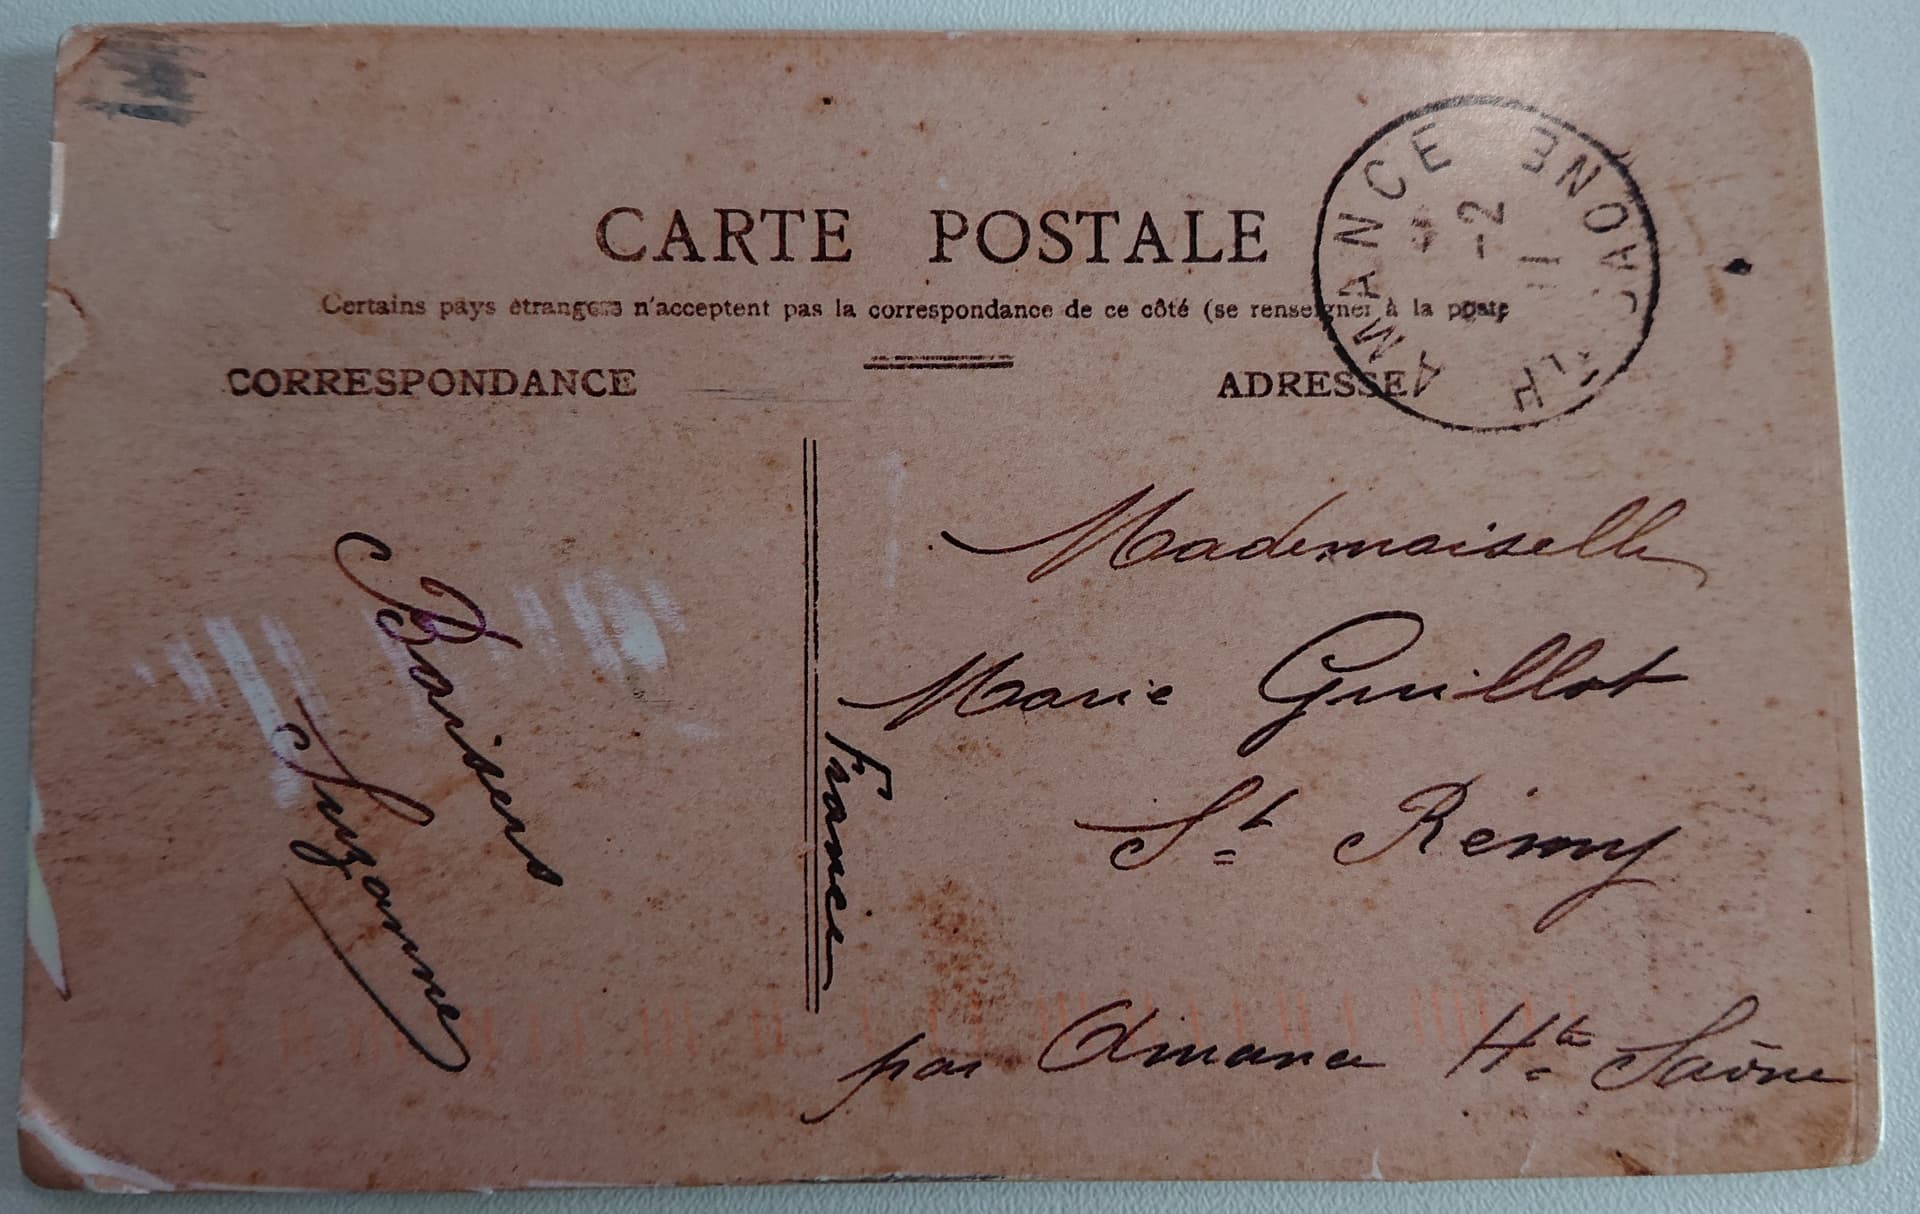 CARTE POSTALE
Certains pays étrangers n'acceptent pas la correspondance de ce côté (se renseigner à la poste
CORRESPONDANCE
ADRESSE
AMANCE
-2
11
HTE SAONE
Baisers
Suzanne
Mademoiselle
Marie Guillot
St Rémy
par Amance Hte Saône
France